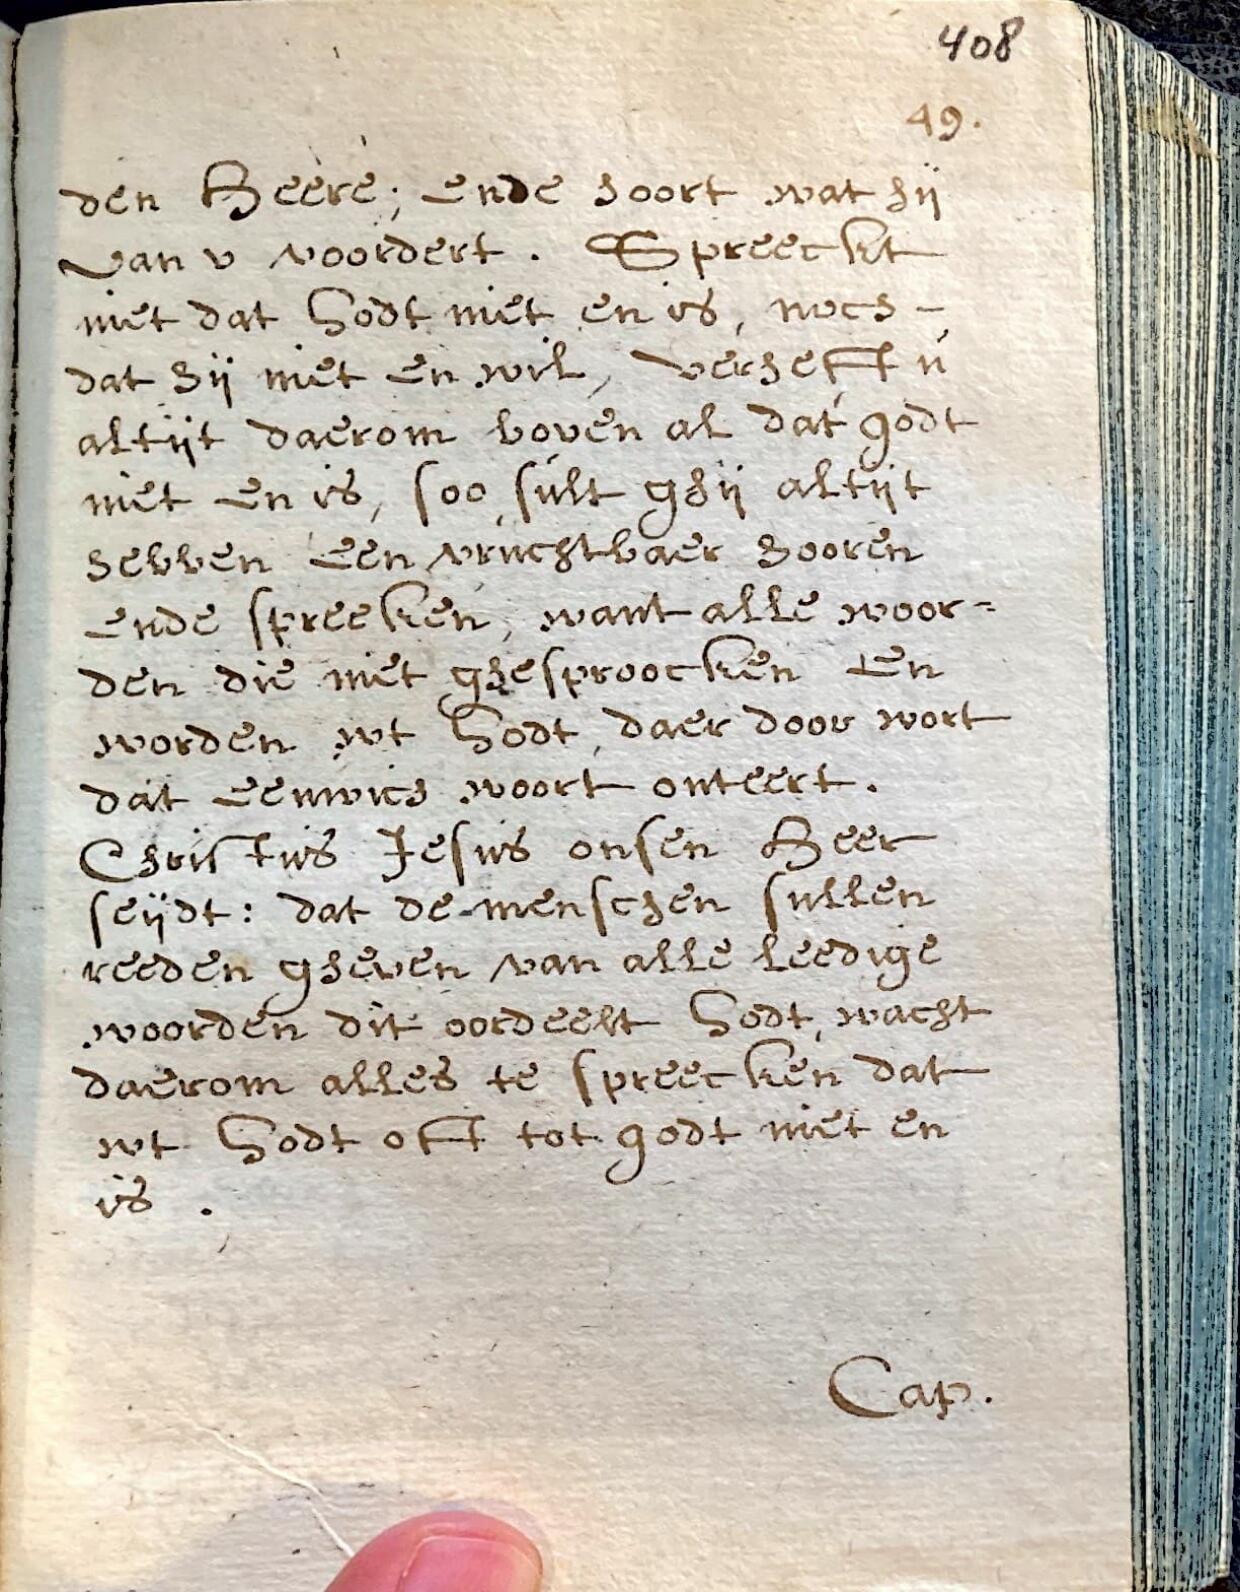 408
49.
den Heere; ende hoort wat hij
van v voordert. Spreeckt
niet dat Godt niet en is, noch-
dat hij niet en wil, verhefft ú
altijt daerom boven al dat godt
niet en is, soo súlt ghij altijt
hebben een vruchtbaer hooren
ende spreeken, want alle woor=
den die niet ghesproocken en
worden wt Godt, daer door wort
dat eeuwich woort onteert.
Christus Jesus onsen Heer
seÿdt: dat de menschen sullen
reeden gheven van alle leedige
woorden dit oordeelt Godt, wacht
daerom alles te spreecken dat
wt Godt offt tot godt niet en
is.
Cap.